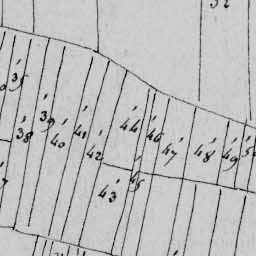 35
38
39
40
41
42
43
44
45
46
47
48
49